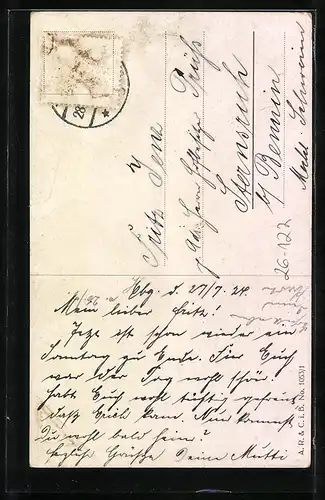 28
Fritz Jenz
p. Adr. Herrn Schlachter Prüß
Sternsruh
b/ Bennin
Meckl. Schwerin
26-122
Hbg. d. 27/7. 24.
Mein lieber Fritz!
Jetzt ist schon wieder ein
Sonntag zu Ende. Für Euch
war der Tag wohl schön.
habt Euch wohl tüchtig gefreut
daß Erich kam. Nun kommst
Du wohl bald heim?
Herzliche Grüße Deine Mutti
A. R. & C. i. B. No. 1033/1